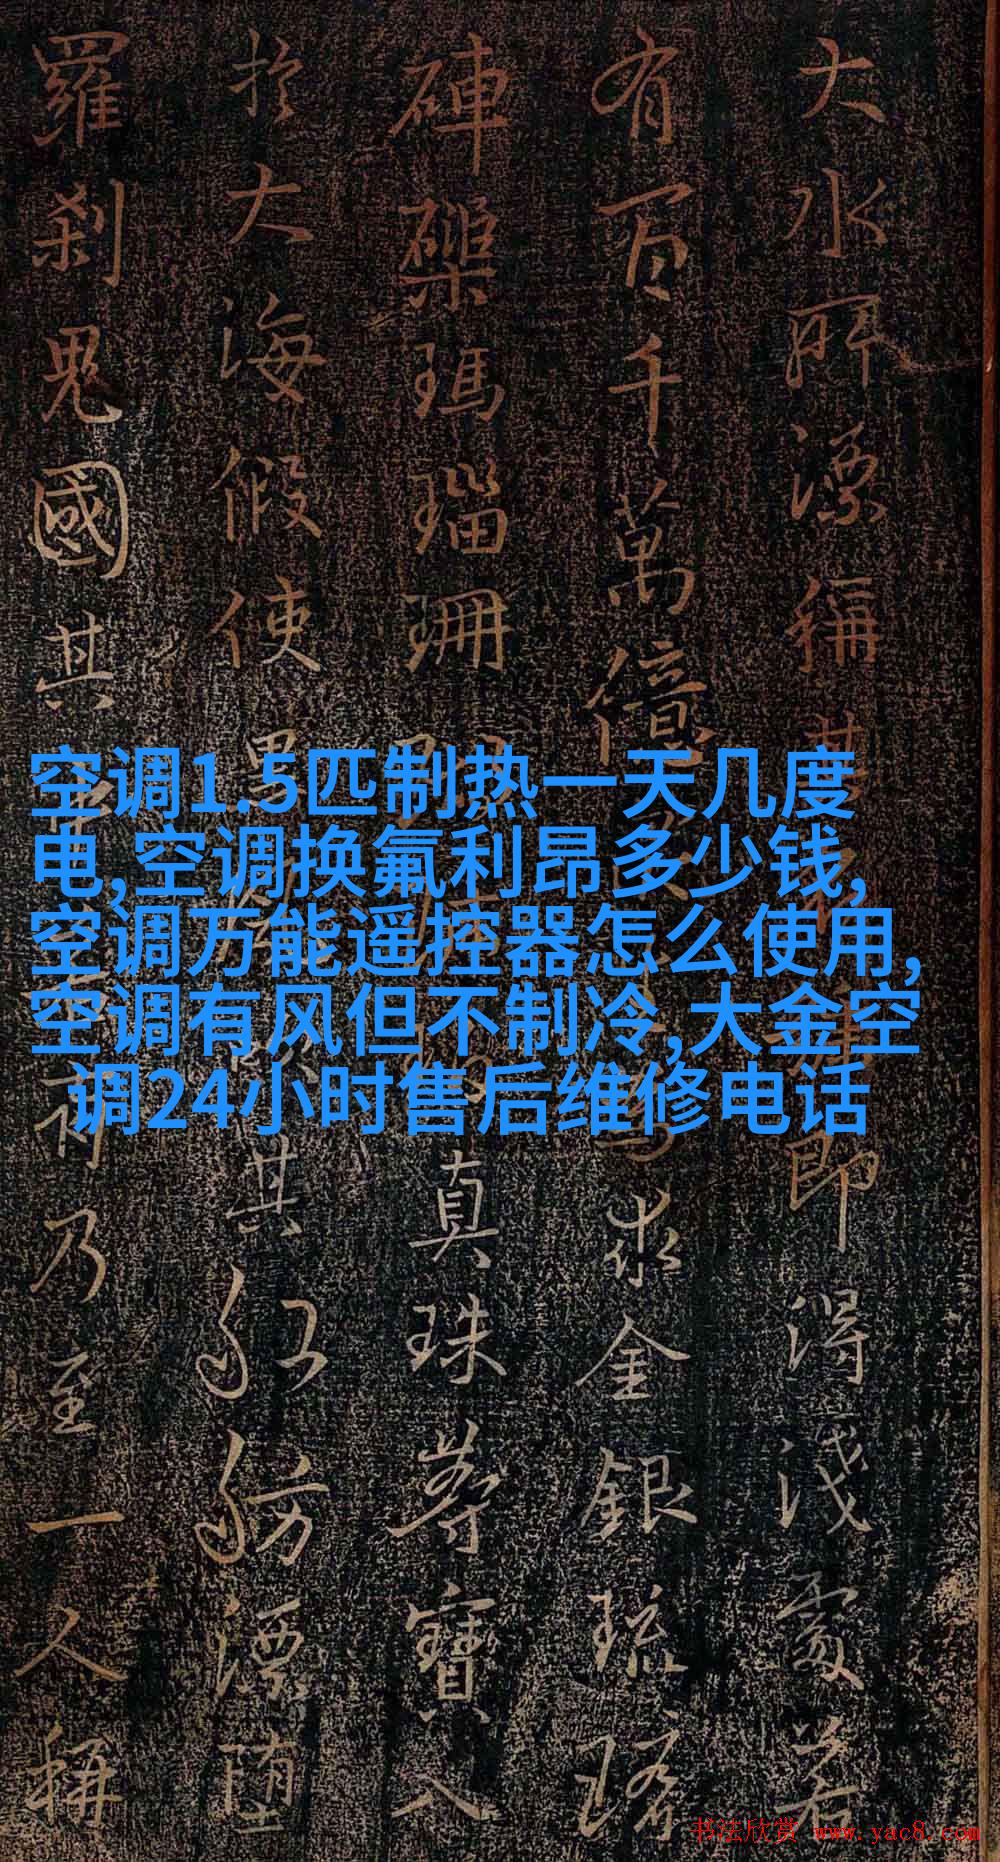 大水所漂稱其即得浅處若
有百千萬億求金銀琉璃
硨磲瑪瑙珊真珠等寶入
扵大海假使黑其舡舫漂堕
羅刹鬼國其有乃至一人稱
空调1.5匹制热一天几度
电,空调换氟利昂多少钱,
空调万能遥控器怎么使用,
空调有风但不制冷,大金空
调24小时售后维修电话
书法欣赏 www.yac8.com